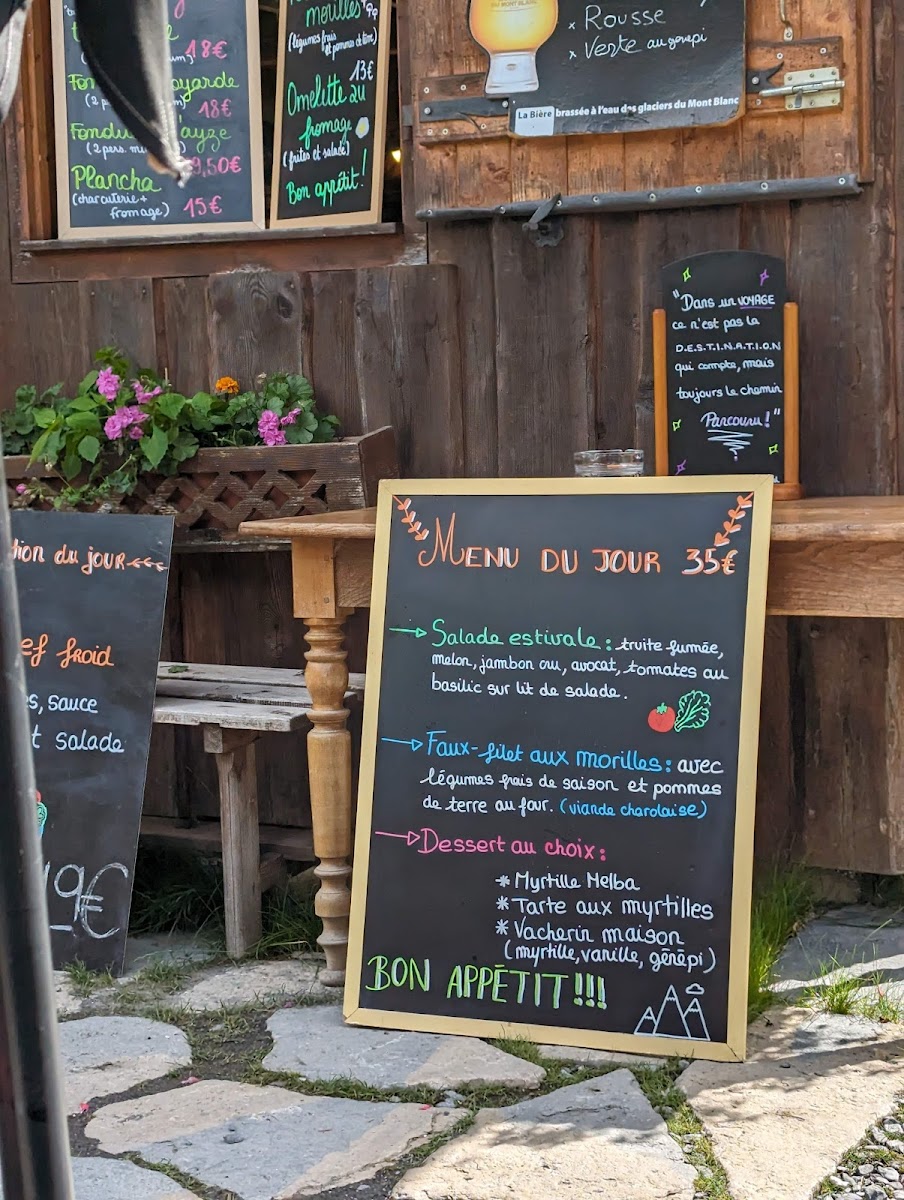 18€
oyarde
(2 p
18€
Fondu
ayze
(2 pers. mi
9,50€
Plancha
(charcuterie+
fromage)
15€
morilles
(légumes frais
et pommes de terre)
13€
Omelette au
fromage
(frites et salade)
Bon appétit!
DU MONT BLANC
* Rousse
* Verte au génépi
La Bière brassée à l'eau des glaciers du Mont Blanc
"Dans un VOYAGE
ce n'est pas la
D.E.S.T.I.N.A.T.I.O.N
qui compte, mais
toujours le chemin
Parcouru!"
ion du jour
ef froid
s, sauce
t salade
19€
MENU DU JOUR 35€
Salade estivale: truite fumée,
melon, jambon cru, avocat, tomates au
basilic sur lit de salade.
Faux-filet aux morilles: avec
légumes frais de saison et pommes
de terre au four. (viande charolaise)
Dessert au choix:
* Myrtille Melba
* Tarte aux myrtilles
* Vacherin maison
(myrtille, vanille, génépi)
BON APPÉTIT!!!